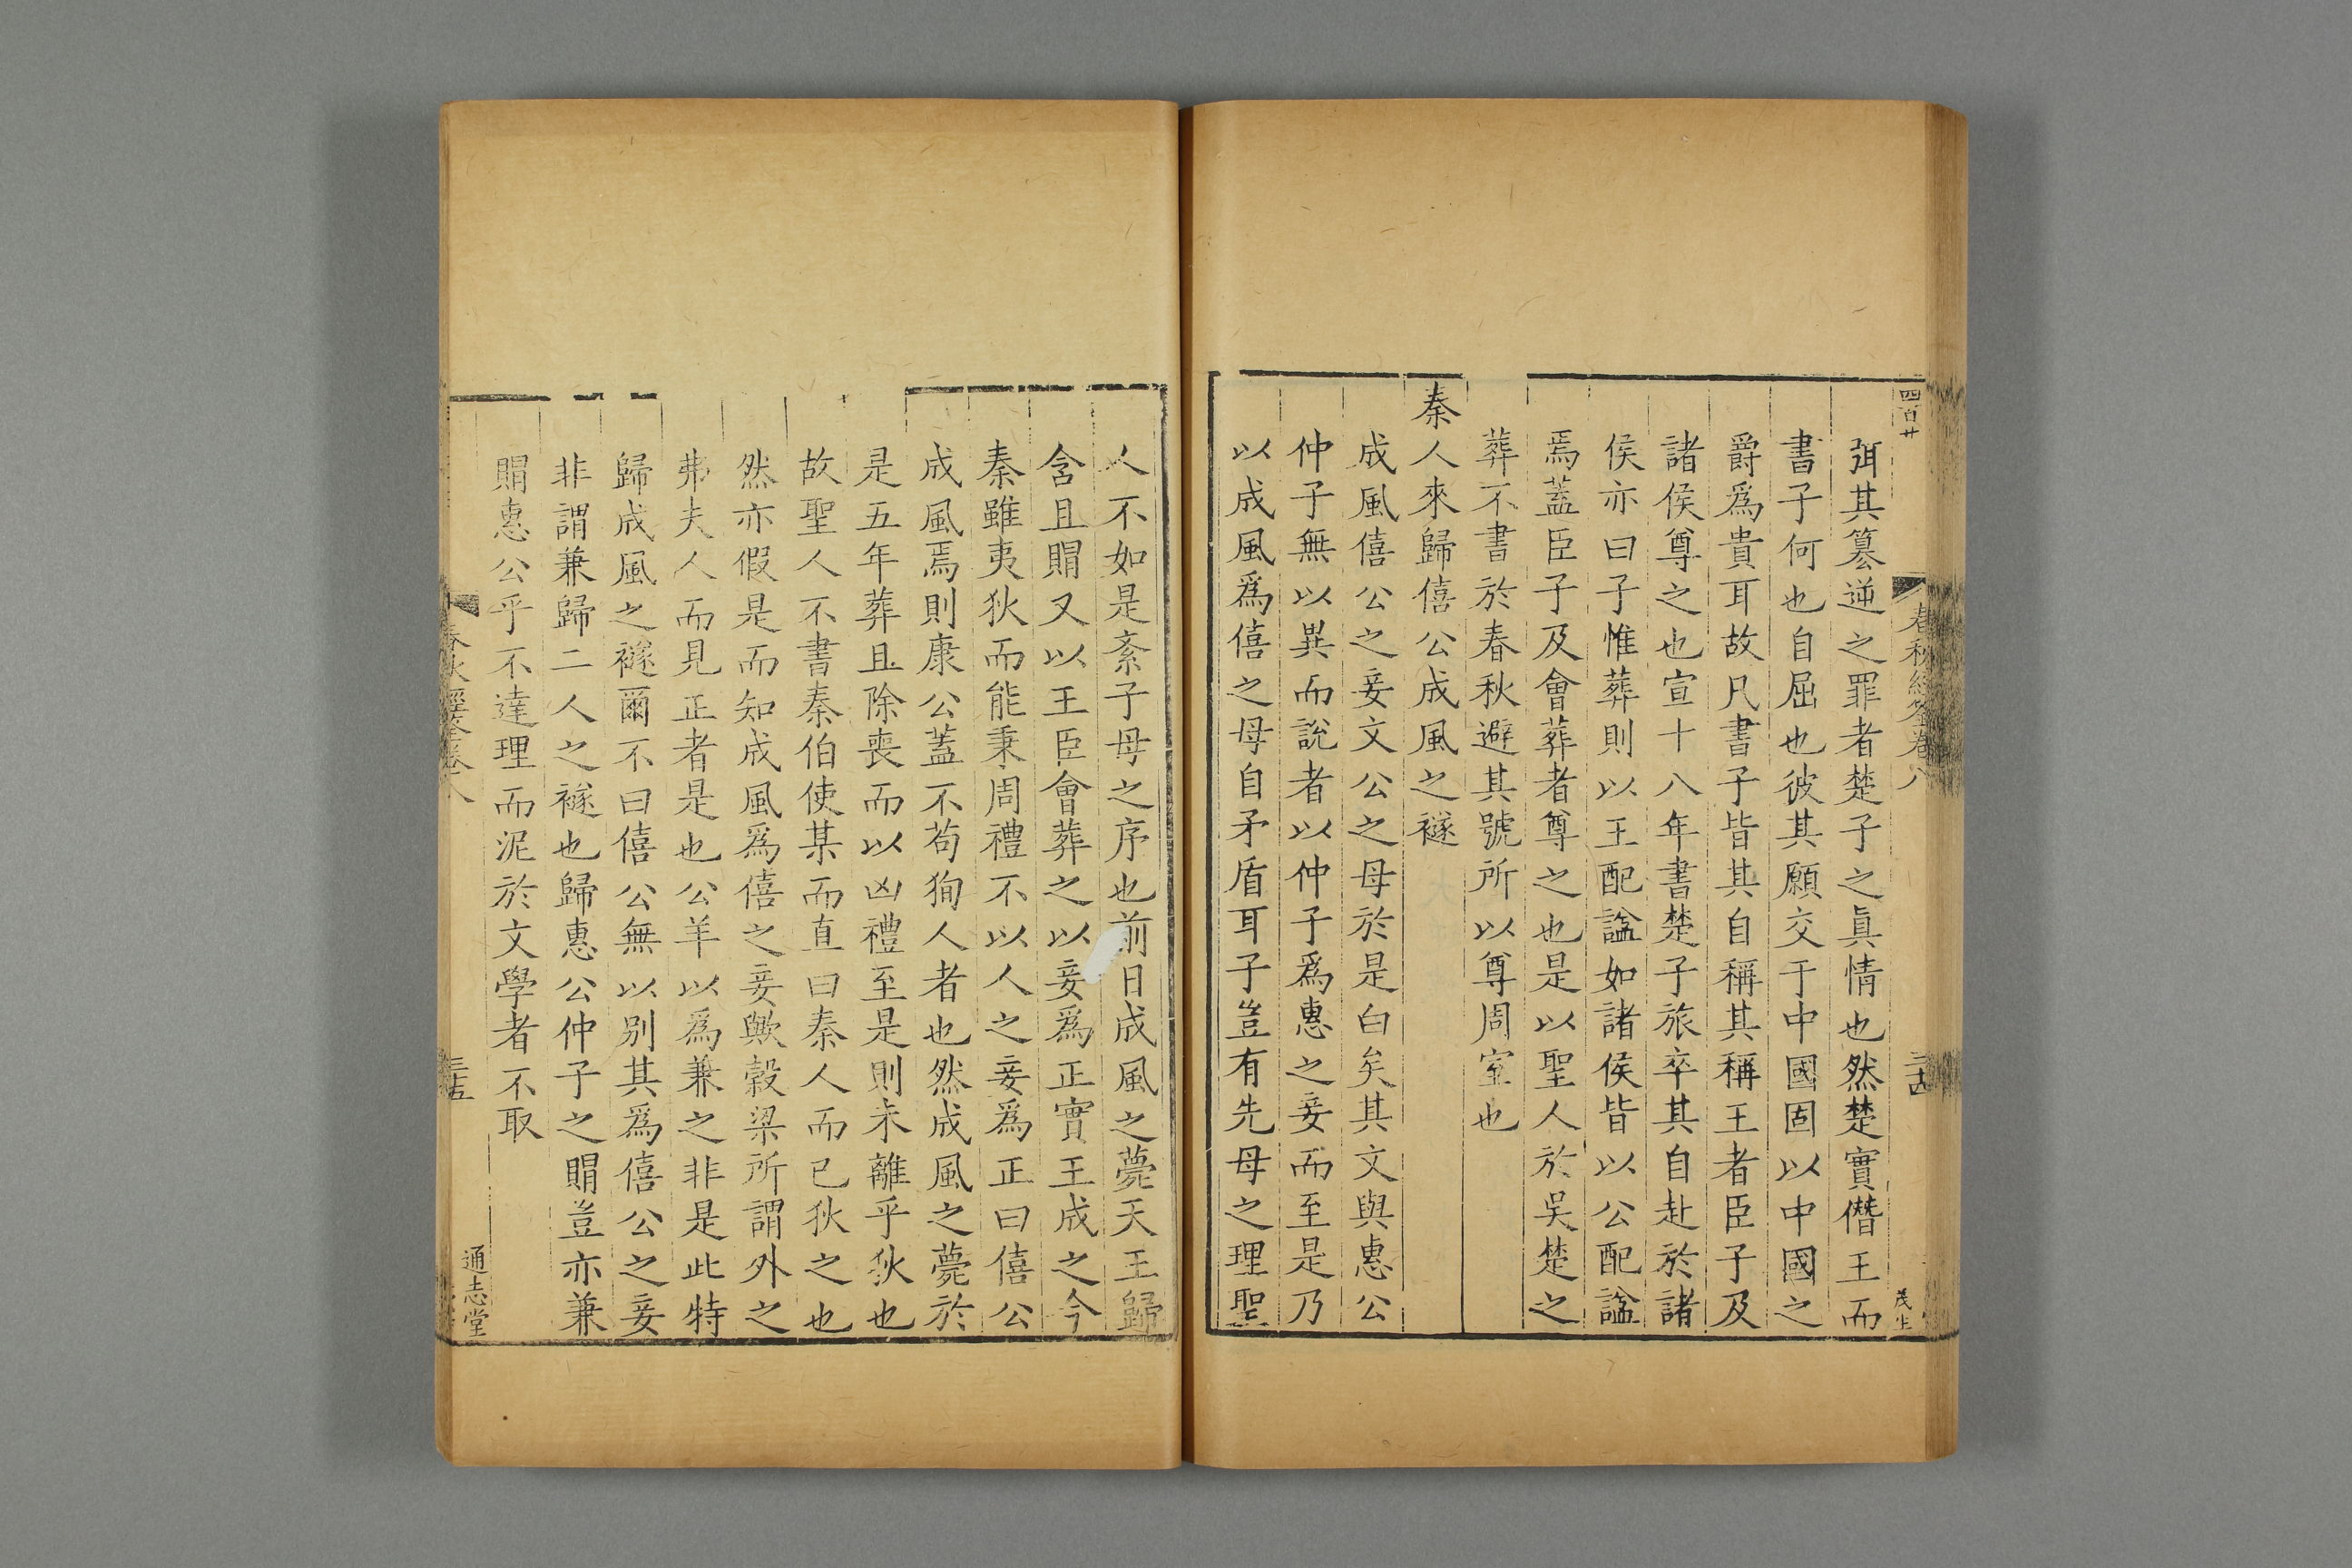 四百廿
春秋經筌卷八
二十四
茂生
弭其簒逆之罪者楚子之眞情也然楚實僭王而
書子何也自屈也彼其願交于中國固以中國之
爵爲貴耳故凡書子皆其自稱其稱王者臣子及
諸侯尊之也宣十八年書楚子旅卒其自赴於諸
侯亦曰子惟葬則以王配諡如諸侯皆以公配諡
焉蓋臣子及會葬者尊之也是以聖人於吳楚之
葬不書於春秋避其號所以尊周室也
秦人來歸僖公成風之襚
成風僖公之妾文公之母於是白矣其文與惠公
仲子無以異而說者以仲子爲惠之妾而至是乃
以成風爲僖之母自矛盾耳子豈有先母之理聖
人不如是紊子母之序也前日成風之薨天王歸
含且賵又以王臣會葬之以妾爲正實王成之今
秦雖夷狄而能秉周禮不以人之妾爲正曰僖公
成風焉則康公蓋不苟狥人者也然成風之薨於
是五年葬且除喪而以凶禮至是則未離乎狄也
故聖人不書秦伯使某而直曰秦人而已狄之也
然亦假是而知成風爲僖之妾歟穀梁所謂外之
弗夫人而見正者是也公羊以爲兼之非是此特
歸成風之襚爾不曰僖公無以別其爲僖公之妾
非謂兼歸二人之襚也歸惠公仲子之賵豈亦兼
賵惠公乎不達理而泥於文學者不取
春秋經筌卷八
二十五
通志堂